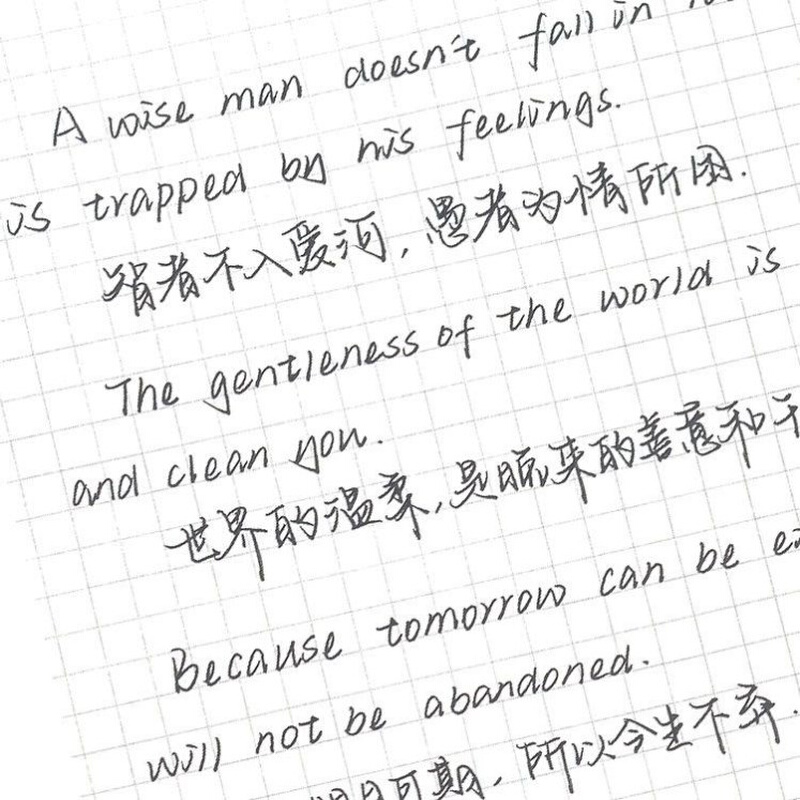 A wise man doesn't fall in
is trapped by his feelings.
智者不入爱河,愚者为情所困.
The gentleness of the world is
and clean you.
世界的温柔,是晾来的善意和干
Because tomorrow can be
will not be abandoned.
明日可期,所以今生不弃.